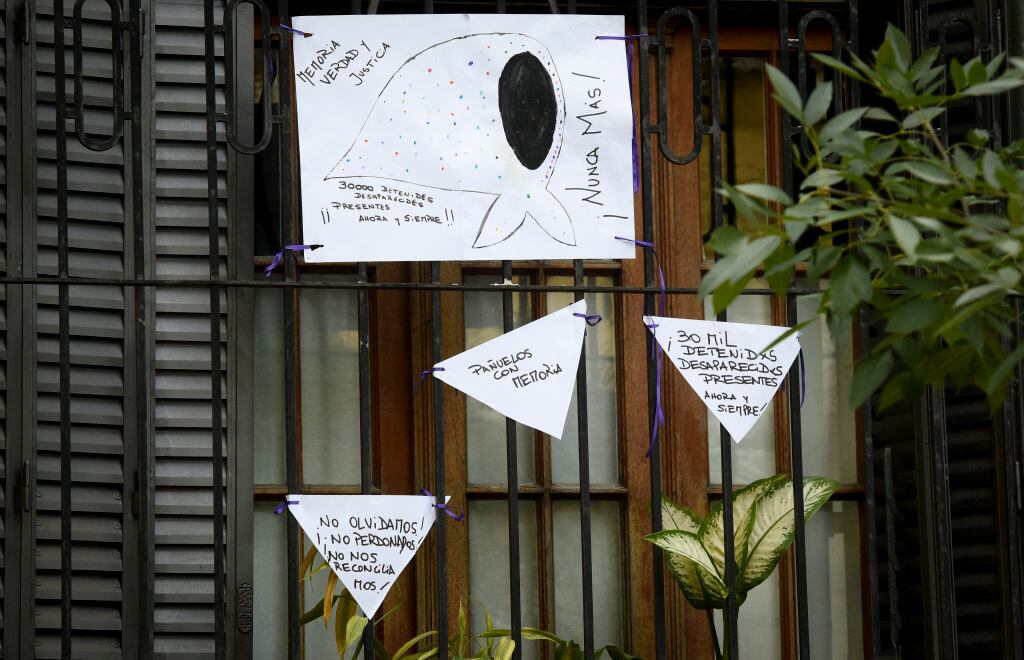 MEMORIA
VERDAD Y
JUSTICIA
30000 DETENIDES
DESAPARECIDES
¡¡ PRESENTES
AHORA Y SIEMPRE!!
¡NUNCA MÁS!
PAÑUELOS
CON
MEMORIA
¡30 MIL
DETENIDXS
DESAPARECIDXS
PRESENTES
AHORA Y
SIEMPRE!
¡NO OLVIDAMOS!
¡NO PERDONAMOS!
¡NO NOS
RECONCILIA
MOS!